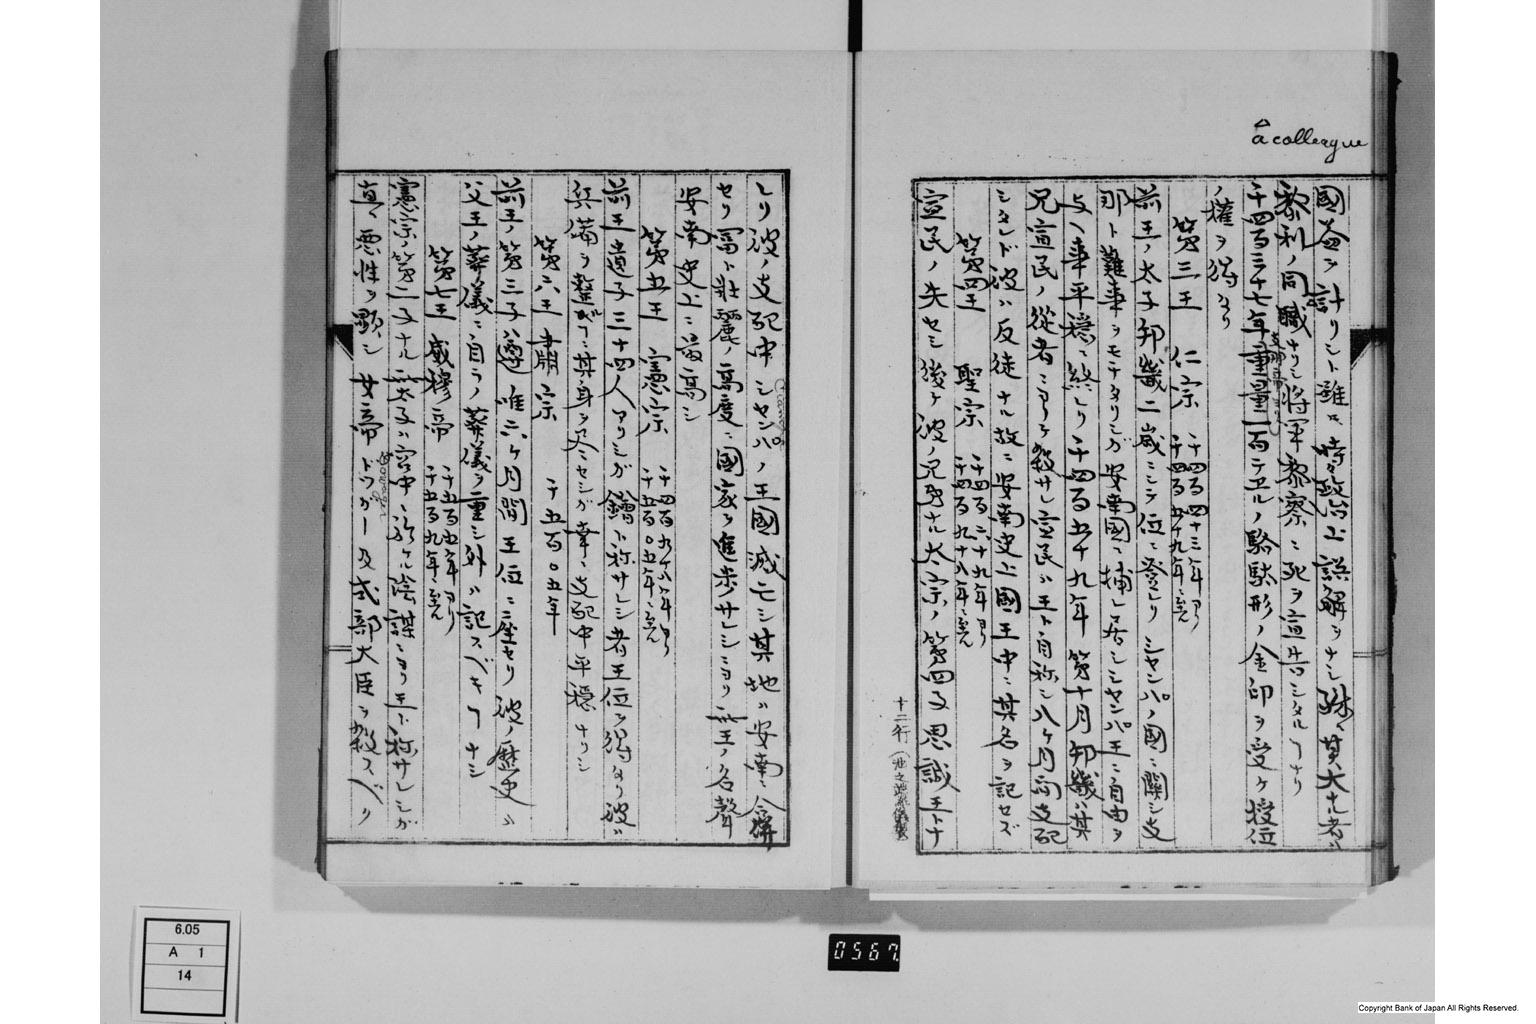 â colleague
國益ヲ計リシト雖ﾓ時々政治上誤解ヲナシ殊ニ其大ナル者ハ
黎利ノ同職ナリシ将軍黎察ニ死ヲ宣告シタルヿナリ
千四百三十七年重量一百テエルノ駱駄形ノ金印ヲ受ケ授位
ノ権ヲ得タリ
第三王 仁宗 千四百四十三年ヨリ 千四百五十九年ニ至ル
前王ノ太子邦畿二歳ニシテ位ニ登レリシャンパノ國ニ関シ支
那ト難事ヲモチタリシガ安南國ニ捕レ居シシャンパ王ニ自由ヲ
与ヘ事平穏ニ終レリ千四百五十九年第十月邦畿ハ其
兄宣民ノ従者ニヨリテ殺サレ宣民ハ王ト自称シ八ヶ月間支配
シタレド彼ハ反徒ナル故ニ安南史上國王中ニ其名ヲ記セズ
第四王 聖宗 千四百六十九年ヨリ 千四百九十八年ニ至ル
宣民ノ失セシ後ケ彼ノ兄弟ナル太宗ノ第四子思誠王トナ
十二行
レリ彼ノ支配中シャンパノ王國滅亡シ其地ハ安南ニ合併
セリ冨ト壮麗ノ高度ニ國家ヲ進歩サレシニヨリ此王ノ名聲
安南史上ニ最高シ
第五王 憲宗 千四百九十八年ヨリ 千五百〇五年ニ至ル
前王遺子三十四人アリシガ鏳ト称サレシ者王位ヲ得タリ彼ハ
兵備ヲ整ガフニ其身ヲ
セシガ幸ニ支配中平穏ナリシ
第六王 肅宗 千五百〇五年
前王ノ第三子ハ遵唯六ヶ月間王位ニ座セリ彼ノ歴史ハ
父王ノ葬儀ニ自ラノ葬儀ヲ重シ外ハ記スベキヿナシ
第七王 威穆帝 千五百五年ヨリ 千五百九年ニ至ル
憲宗ノ第二子ナル此太子ハ宮中ニ於ケル陰謀ニヨリ王ト称サレシガ
真ノ悪性ヲ顕シ女帝ドワガー及式部大臣ヲ殺スベク
6.05
A 1
14
0567
Copyright Bank of Japan All Rights Reserved.